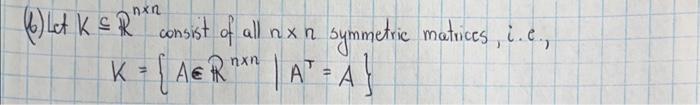 (6) Let K ⊆ ℝⁿˣⁿ consist of all n × n symmetric matrices, i.e.,
K = { A ∈ ℝⁿˣⁿ | Aᵀ = A }